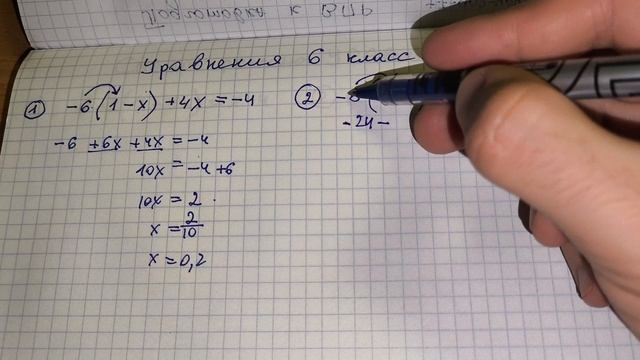 Подготовка к ВПР
Уравнения 6 класс
① -6(1-x)+4x=-4
-6 +6x +4x = -4
10x = -4+6
10x = 2
x = 2/10
x = 0,2
②
-24-